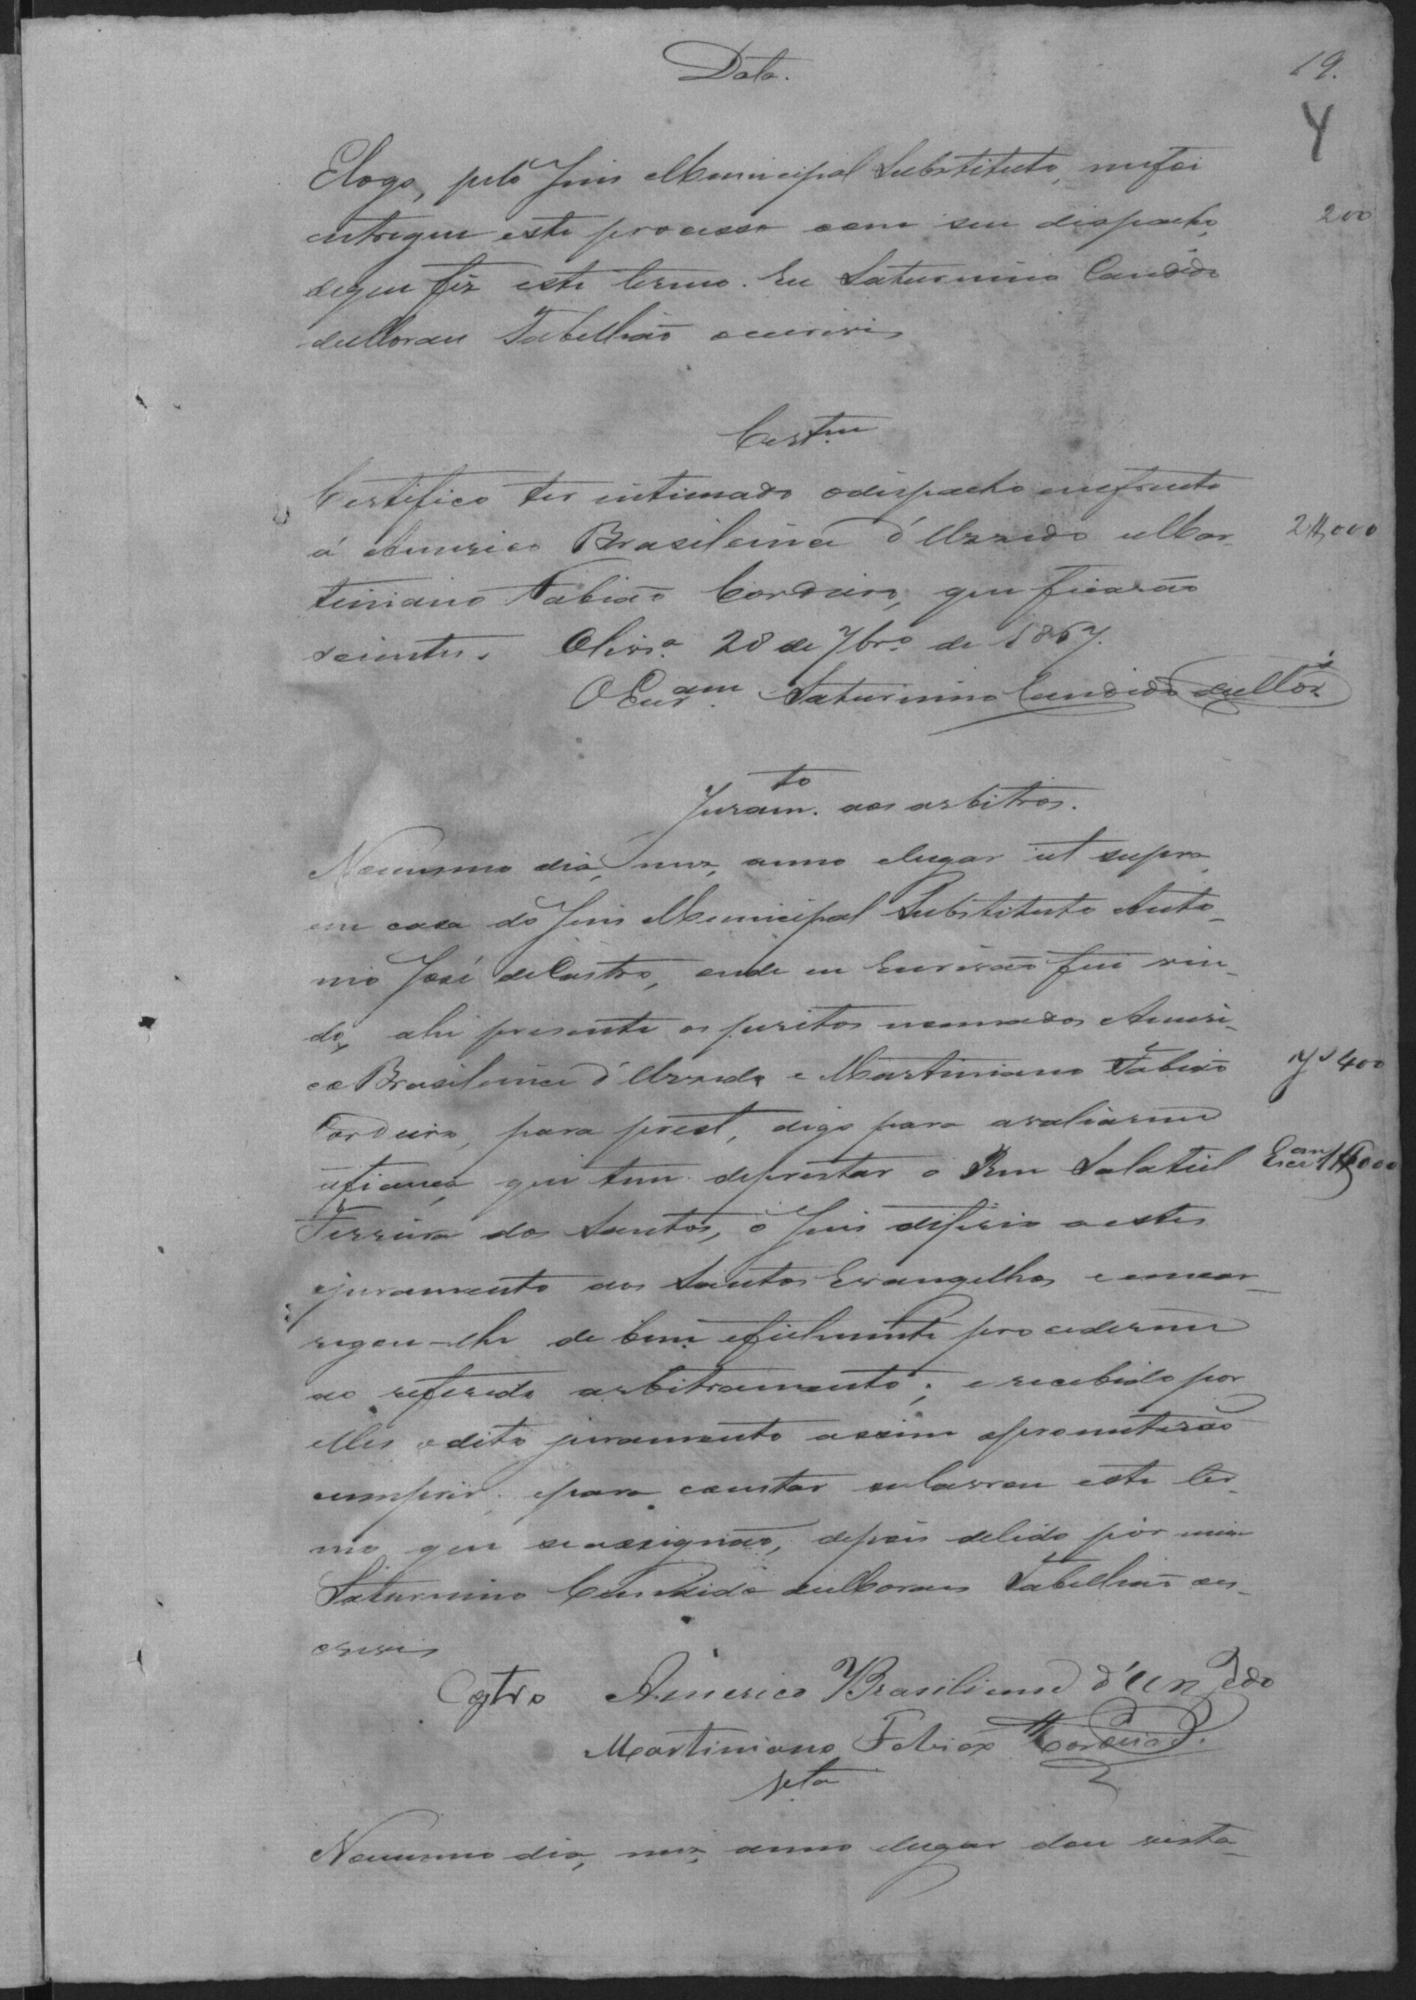 19.
Data.
Y
Elogo, pelo Juis Municipal Substituto, mefoi
entregue este processo com seu dispacho, 200
dequefiz este termo. Eu Saturnino Candido
deMoraes Tabellião oescrivi
Cert.m
Certifico ter intimado odispacho emfrente
á Americo Brasileiro d'Azzedo eMar- 2$000
tiniano Fabião Cordeiro, que ficarão
scientes. Olivr.a 28 de 7br.o de 1867.
O Escr.am Saturnino Candido deMor.s
Juram.to aos arbitros.
Nomesmo dia, mez, anno elugar ut supra,
em casa do Juis Municipal Substituto Anto-
nio José deCastro, onde eu Escrivão fui vin-
do, ahi presente os peritos nomeados Ameri-
co Brasileiro d'Azzedo e Martiniano Fabião
Cordeiro, para prest, digo para avaliarem
afiança que tem deprestar o Reu Salatiel
Ferreira dos Santos, o Juis diferio aestes
ojuramento dos Santos Evangelhos eencar-
regou-lhe de bem efielmente procederem
ao referido arbitramento; erecebido por
elles odito juramento assim oprometerão
cumprir, epara constar eulavrou este ter-
mo que seassignão, depois delido por mim
Saturnino Candido deMoraes Tabellião oes-
crivi
Castro Americo Brasiliano d'Azzedo
Martiniano Fabião Cordeiro.
V.ta
Nomesmo dia, mez, anno elugar dou vista